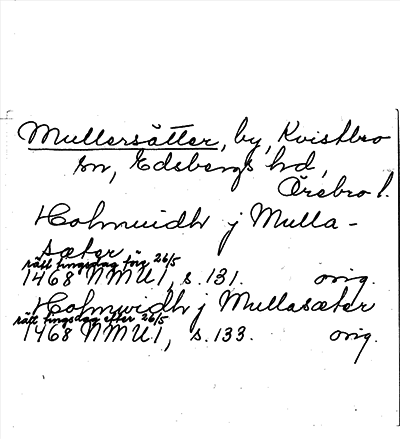 Mullersätter, by, Kvistbro
sn, Edsbergs hd,
Örebro l.
Holmvidh j Mulla-
sæter
rätt tingsdag för 26/5
1468 NMU1, s. 131. orig.
Holmvidh j Mullasæter
rätt tingsdag efter 26/5
1468 NMU1, s. 133. orig.